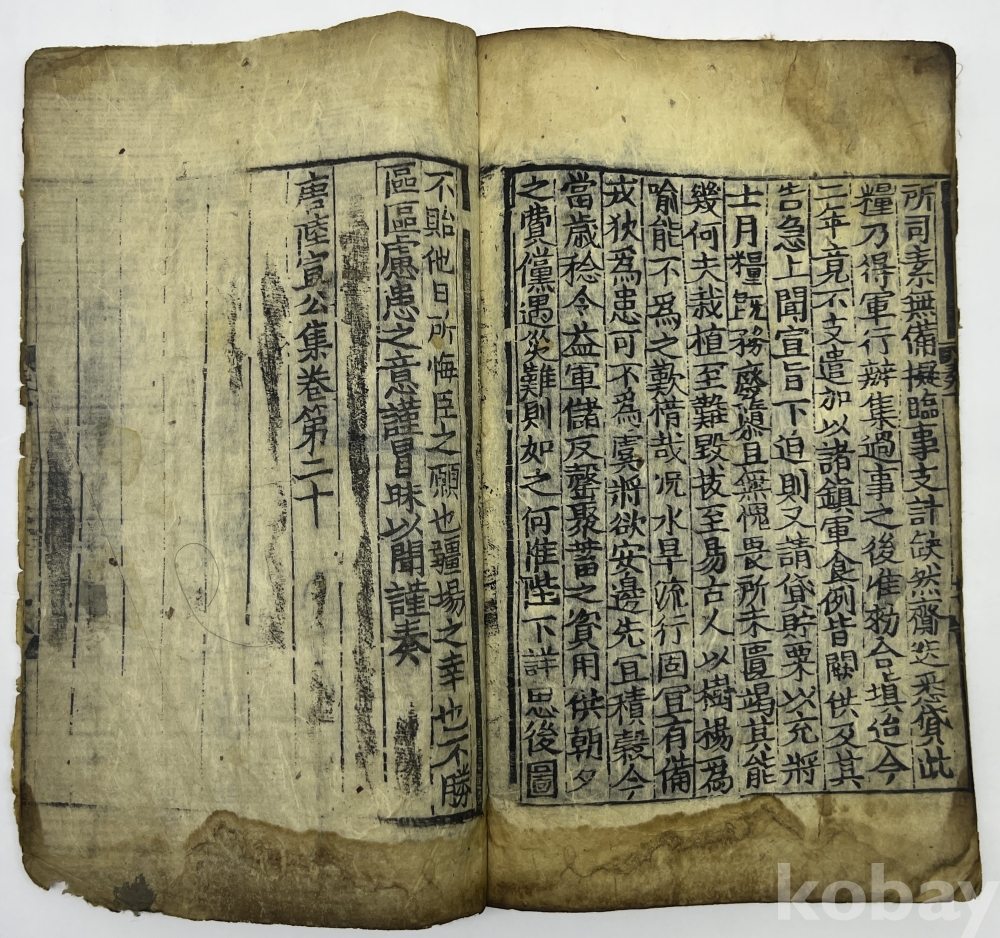 所司素無備擬臨事支計缺然齎送悉貸此
糧乃得軍行辦集過事之後准勑合塡迨今
二年竟不支遣加以諸鎭軍食例皆闕供及其
告急上聞宣旨下迫則又請貸貯粟以充將
士月糧旣務廢隳慕且無愧畏所未匱竭其能
幾何夫栽植至難毀拔至易古人以樹楊爲
喩能不爲之歎惜哉況水旱流行固宜有備
戎狄爲患可不爲虞將欲安邊先宜積穀今
當歲稔令益軍儲反罄聚蓄之資用供朝夕
之費儻遇災難則如之何惟陛下詳思後圖
不貽他日所悔臣之願也疆場之幸也不勝
區區慮患之意謹冒昧以聞謹奏
唐陸宣公集卷第二十
kobay